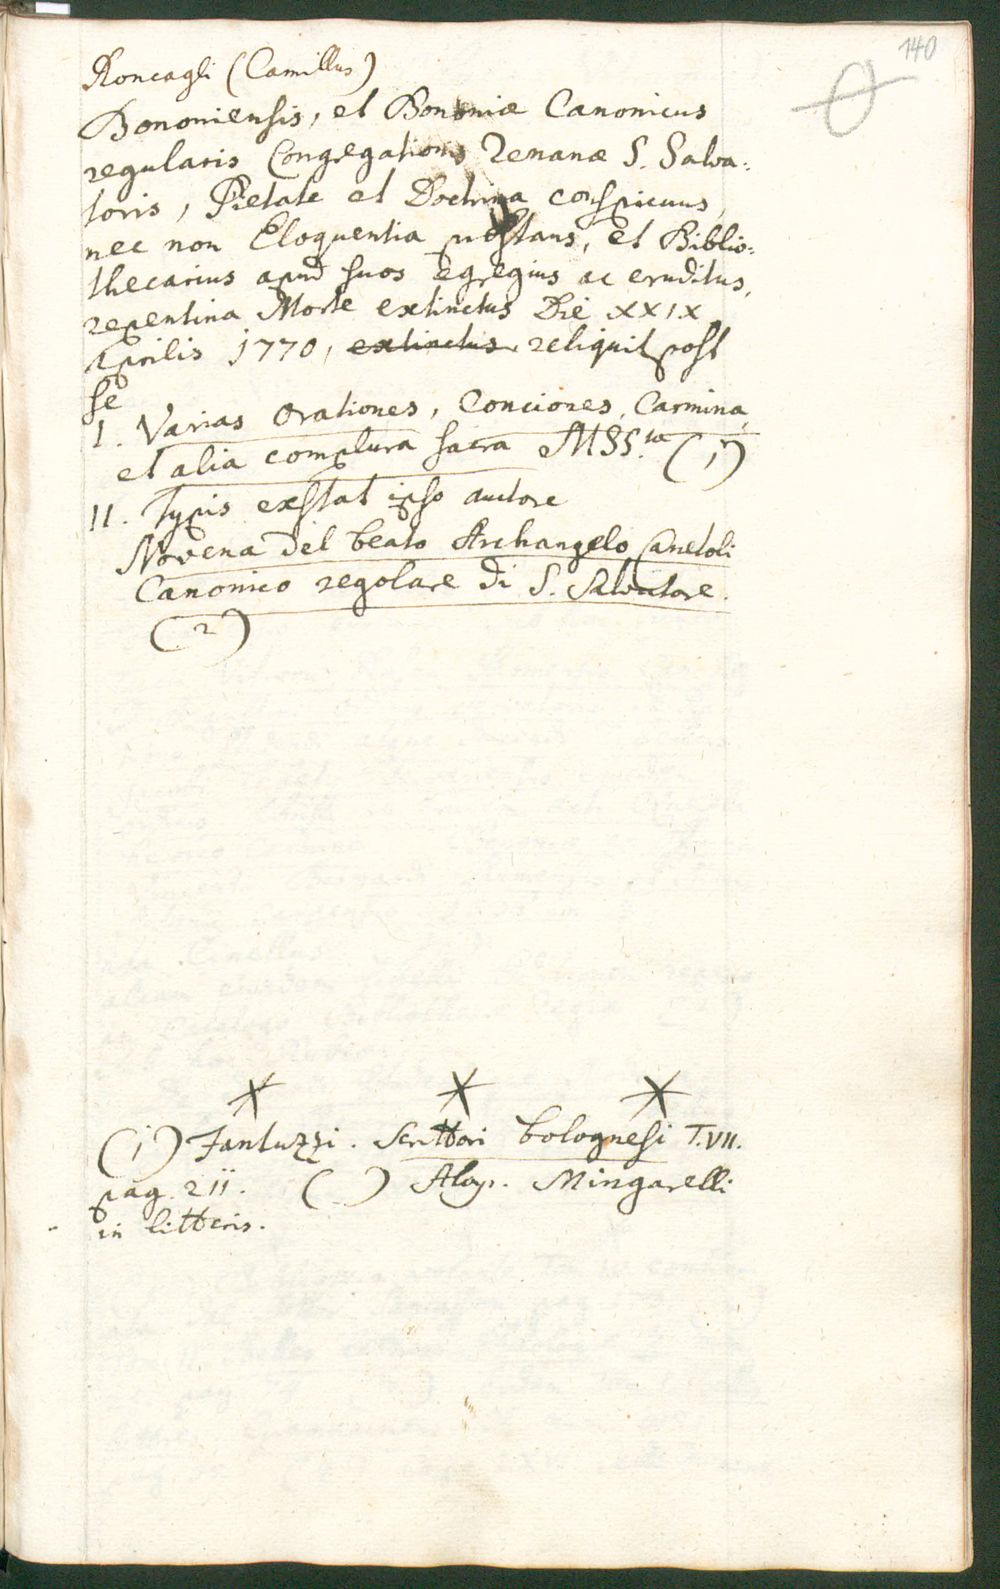 140
Roncagli (Camillus)
Bononiensis, et Bononiæ Canonicus
regularis Congregationis Renanæ S. Salva:
toris, Pietate et Doctrina conspicuus,
nec non Eloquentia præstans, et Biblio:
thecarius apud suos egregius ac eruditus,
repentina Morte extinctus Die XXIX
Aprilis 1770, extinctus reliquit post
se
I. Varias Orationes, Conciones, Carmina,
et alia complura sacra MSS.ta (1)
II. Typis exstat ipso auctore
Novena del beato Archangelo Canetoli
Canonico regolare di S. Salvatore.
(2)
(1) Fantuzzi. Scrittori bolognesi T.VII.
pag. 211. ( ) Aloys. Mingarelli
in litteris.